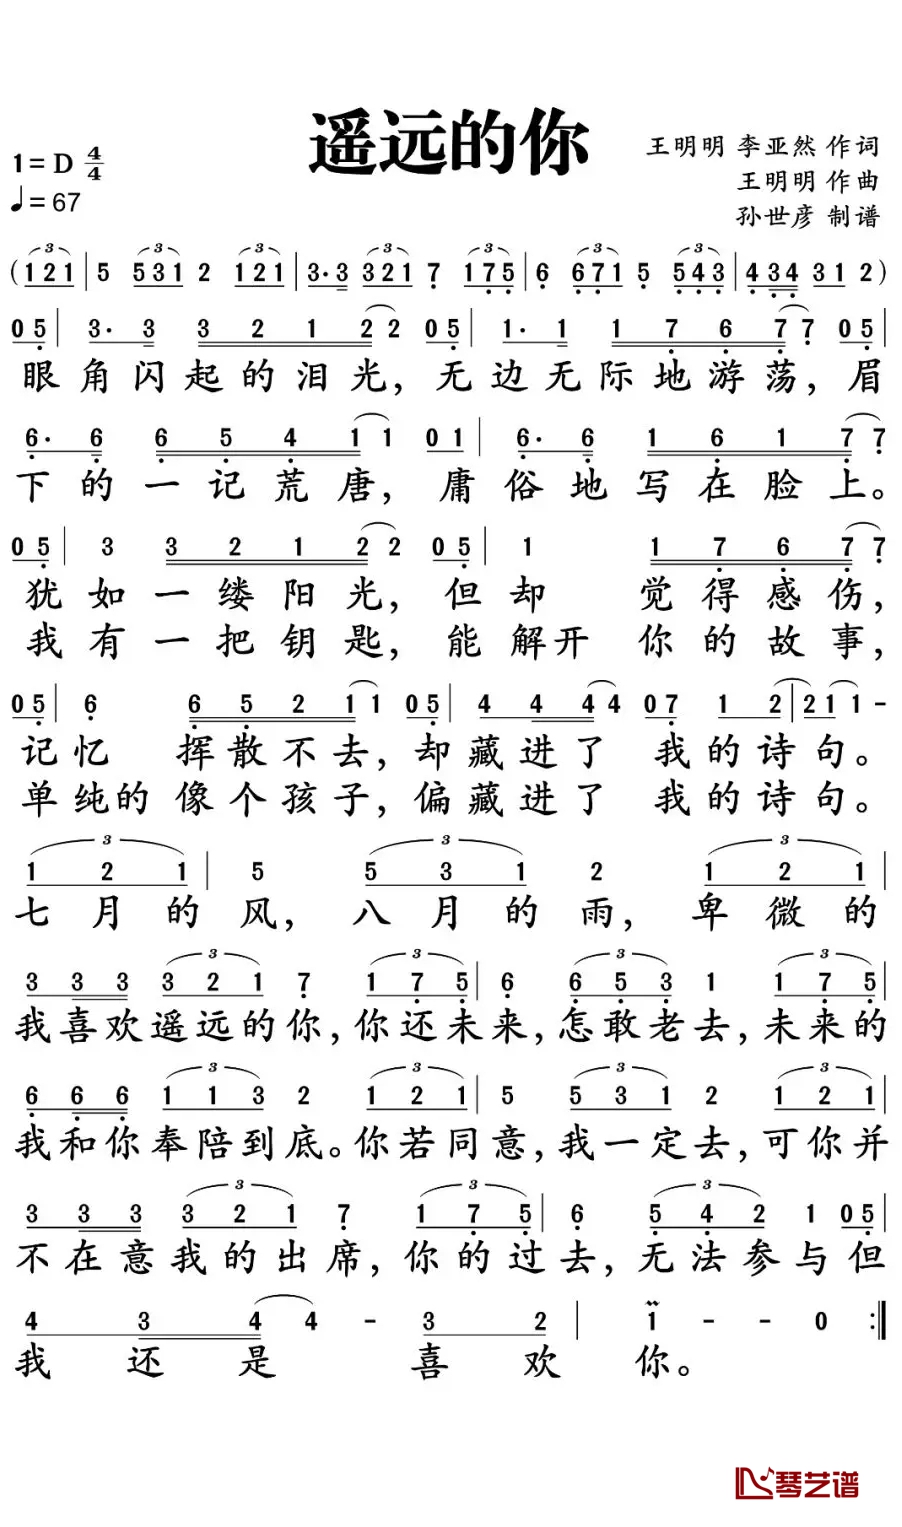 遥远的你
1=D 4/4
♩=67
王明明 李亚然 作词
王明明 作曲
孙世彦 制谱
(121 | 5 531 2 121 | 3·3 321 7 175 | 6 671 5 543 | 434 312)
05 | 3· 3 3 2 1 2 2 05 | 1· 1 1 7 6 7 7 05 |
眼角闪起的泪光，无边无际地游荡，眉
6· 6 6 5 4 1 1 01 | 6· 6 1 6 1 7 7
下的一记荒唐，庸俗地写在脸上。
05 | 3 3 2 1 2 2 05 | 1 1 7 6 7 7
犹如一缕阳光，但却 觉得感伤，
我有一把钥匙，能解开 你的故事，
05 | 6 6 5 2 1 1 05 | 4 4 4 4 07 1 2 | 21 1 -
记忆 挥散不去，却藏进了 我的诗句。
单纯的 像个孩子，偏藏进了 我的诗句。
1 2 1 | 5 5 3 1 2 1 2 1 |
七月的风，八月的雨，卑微的
3 3 3 3 2 1 7 1 7 5 | 6 6 5 3 1 1 7 5 |
我喜欢遥远的你，你还未来，怎敢老去，未来的
6 6 6 1 1 3 2 1 2 1 | 5 5 3 1 2 1 2 1 |
我和你奉陪到底。你若同意，我一定去，可你并
3 3 3 3 2 1 7 1 7 5 | 6 5 4 2 1 05 |
不在意我的出席，你的过去，无法参与但
4 3 4 4 - 3 2 | 1 - - 0 :|
我还是喜欢你。
琴艺谱